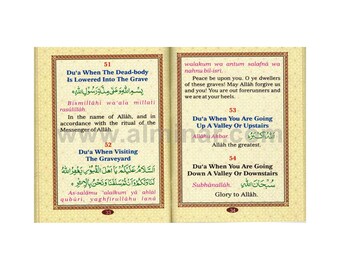 51
Du'a When The Dead-body
Is Lowered Into The Grave
بِسْمِ اللّٰهِ وَعَلٰى مِلَّةِ رَسُوْلِ اللّٰهِ
Bismillāhi wa'ala millati
rasūlillāh.
In the name of Allāh, and in
accordance with the ritual of the
Messenger of Allāh.
52
Du'a When Visiting
The Graveyard
اَلسَّلَامُ عَلَيْكُمْ يَا اَهْلَ الْقُبُوْرِ يَغْفِرُ اللّٰهُ
لَنَا وَلَكُمْ وَاَنْتُمْ سَلَفُنَا وَنَحْنُ بِالْاَثَرِ
As-salāmu 'alaikum yā ahlal
qubūri, yaghfirullāhu lanā
walakum wa antum salafnā wa
nahnu bil-asri.
Peace be upon you. O ye dwellers
of these graves! May Allāh forgive
us and you! You are our forerunners and
we are at your heels.
53
Du'a When You Are Going
Up A Valley Or Upstairs
Allāhu Akbar.
Allāh the greatest.
54
Du'a When You Are Going
Down A Valley Or Downstairs
Subhānallāh.
سُبْحَانَ اللّٰهِ
Glory to Allāh.